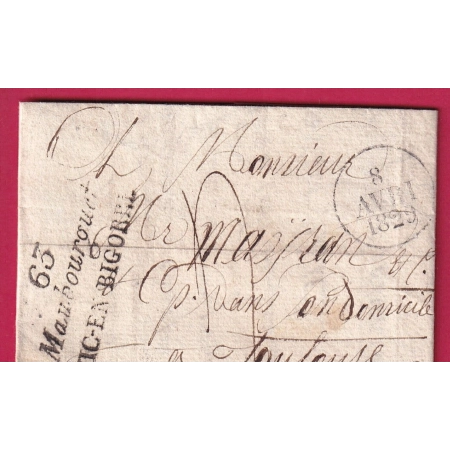 A Monsieur
Mr mayran & C.
en Domicile
a Toulouse
8
AVRI
1829
63
Maubourguet
VIC-EN-BIGORRE